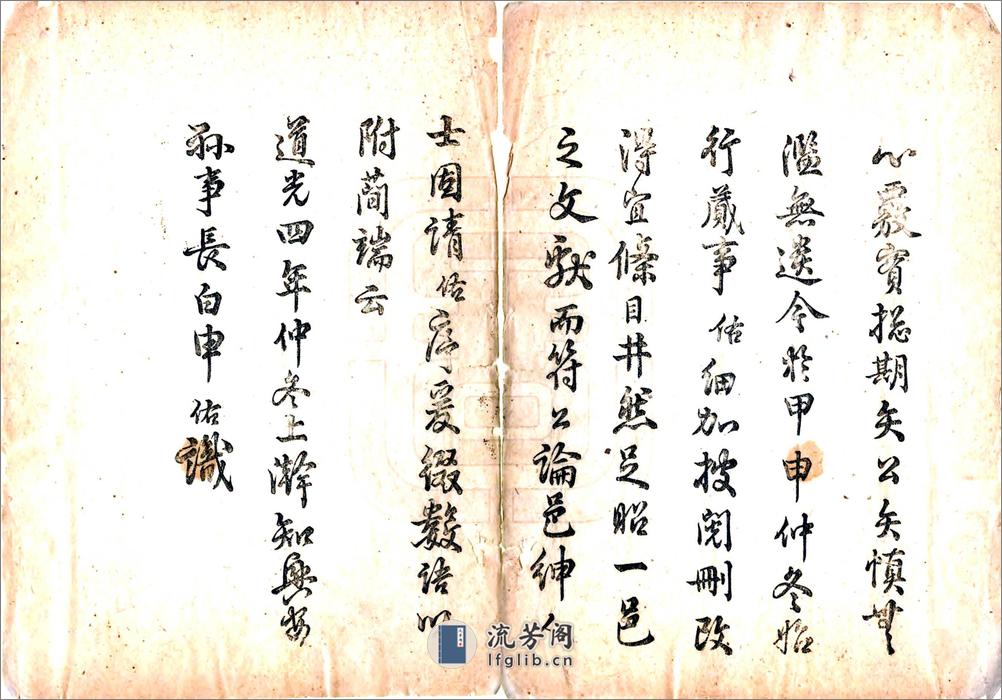 心覈實摠期矢公矢慎無
濫無遺今於甲申仲冬始
行蕆事佑細加披閱刪改
得宜條目井然足昭一邑
之文獻而符公論邑紳
士固請佑序爰綴數語以
附簡端云
道光四年仲冬上澣知興安
縣事長白申佑識
流芳阁
lfglib.cn